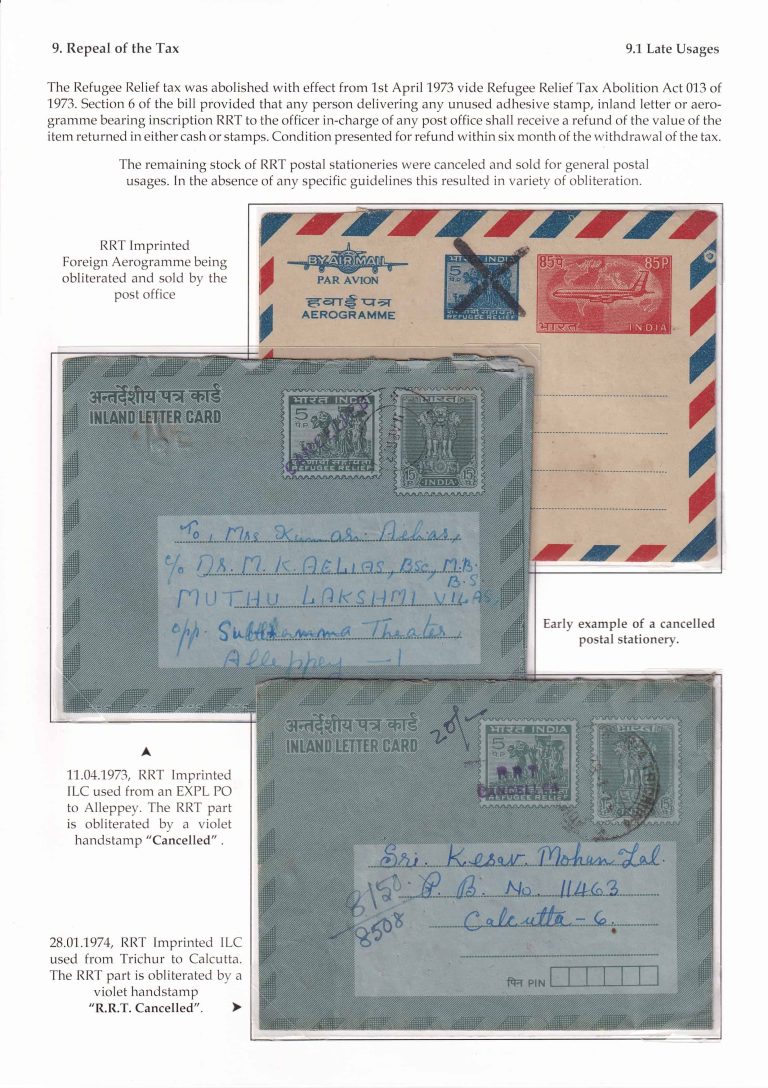 9. Repeal of the Tax
9.1 Late Usages
The Refugee Relief tax was abolished with effect from 1st April 1973 vide Refugee Relief Tax Abolition Act 013 of
1973. Section 6 of the bill provided that any person delivering any unused adhesive stamp, inland letter or aero-
gramme bearing inscription RRT to the officer in-charge of any post office shall receive a refund of the value of the
item returned in either cash or stamps. Condition presented for refund within six month of the withdrawal of the tax.
The remaining stock of RRT postal stationeries were canceled and sold for general postal
usages. In the absence of any specific guidelines this resulted in variety of obliteration.
RRT Imprinted
Foreign Aerogramme being
obliterated and sold by the
post office
BY AIR MAIL
PAR AVION
हवाई पत्र
AEROGRAMME
भारत INDIA
5
REFUGEE RELIEF
85प 85P
भारत INDIA
अन्तर्देशीय पत्र कार्ड
INLAND LETTER CARD
भारत INDIA
5
N.P.
शरणार्थी सहायता
REFUGEE RELIEF
CANCELLED
15 15
INDIA
To, Mrs Kumari Aelias,
c/o DR. M. K. AELIAS, BSc, M.B.
B.S
MUTHU LAKSHMI VILAS,
opp. Subbamma Theater,
Alleppey - 1
Early example of a cancelled
postal stationery.
11.04.1973, RRT Imprinted
ILC used from an EXPL PO
to Alleppey. The RRT part
is obliterated by a violet
handstamp "Cancelled" .
अन्तर्देशीय पत्र कार्ड
INLAND LETTER CARD
20/-
भारत INDIA
5
R.R.T
CANCELLED
REFUGEE RELIEF
15
Sri. Kesav. Mohan Lal.
P. B. No. 11463
Calcutta - 6.
8150
8508
पिन PIN
28.01.1974, RRT Imprinted ILC
used from Trichur to Calcutta.
The RRT part is obliterated by a
violet handstamp
"R.R.T. Cancelled".